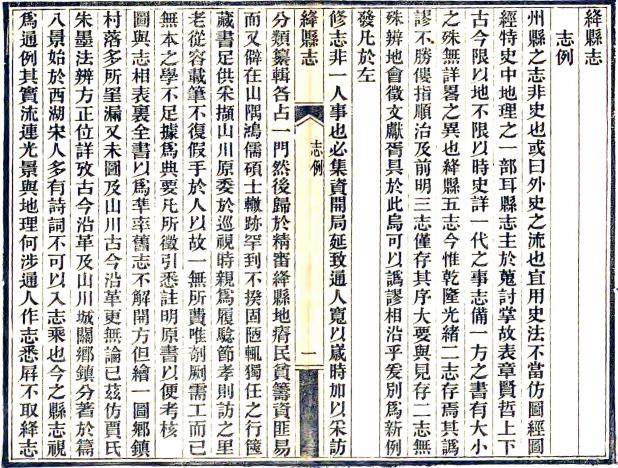 絳縣志
志例
州縣之志非史也或曰外史之流也宜用史法不當仿圖經圖
經特史中地理之一部耳縣志主於蒐討掌故表章賢哲上下
古今限以地不限以時史詳一代之事志備一方之書有大小
之殊無詳畧之異也絳縣五志今惟乾隆光緒二志存焉其譌
謬不勝僂指順治及前明三志僅存其序大要與見存二志無
殊辨地會徵文獻胥具於此烏可以譌謬相沿乎爰別爲新例
發凡於左
修志非一人事也必集資開局延致通人寬以歲時加以采訪
絳縣志
志例
一
分類纂輯各占一門然後歸於精審絳縣地瘠民貧籌資匪易
而又僻在山隅鴻儒碩士轍跡罕到不揆固陋輒獨任之行篋
藏書足供采擷山川原委於巡視時親爲履騐節孝則訪之里
老從容載筆不復假手於人以故一無所費唯剞劂需工而已
無本之學不足據爲典要凡所徵引悉註明原書以便考核
圖與志相表裏全書以爲準率舊志不解開方但繪一圖鄉鎮
村落多所罣漏又未圖及山川古今沿革更無論已茲仿賈氏
朱墨法辨方正位詳攷古今沿革及山川城關鄉鎮分著於篇
八景始於西湖宋人多有詩詞不可以入志乘也今之縣志視
爲通例其實流連光景與地理何涉通人作志悉屏不取絳志